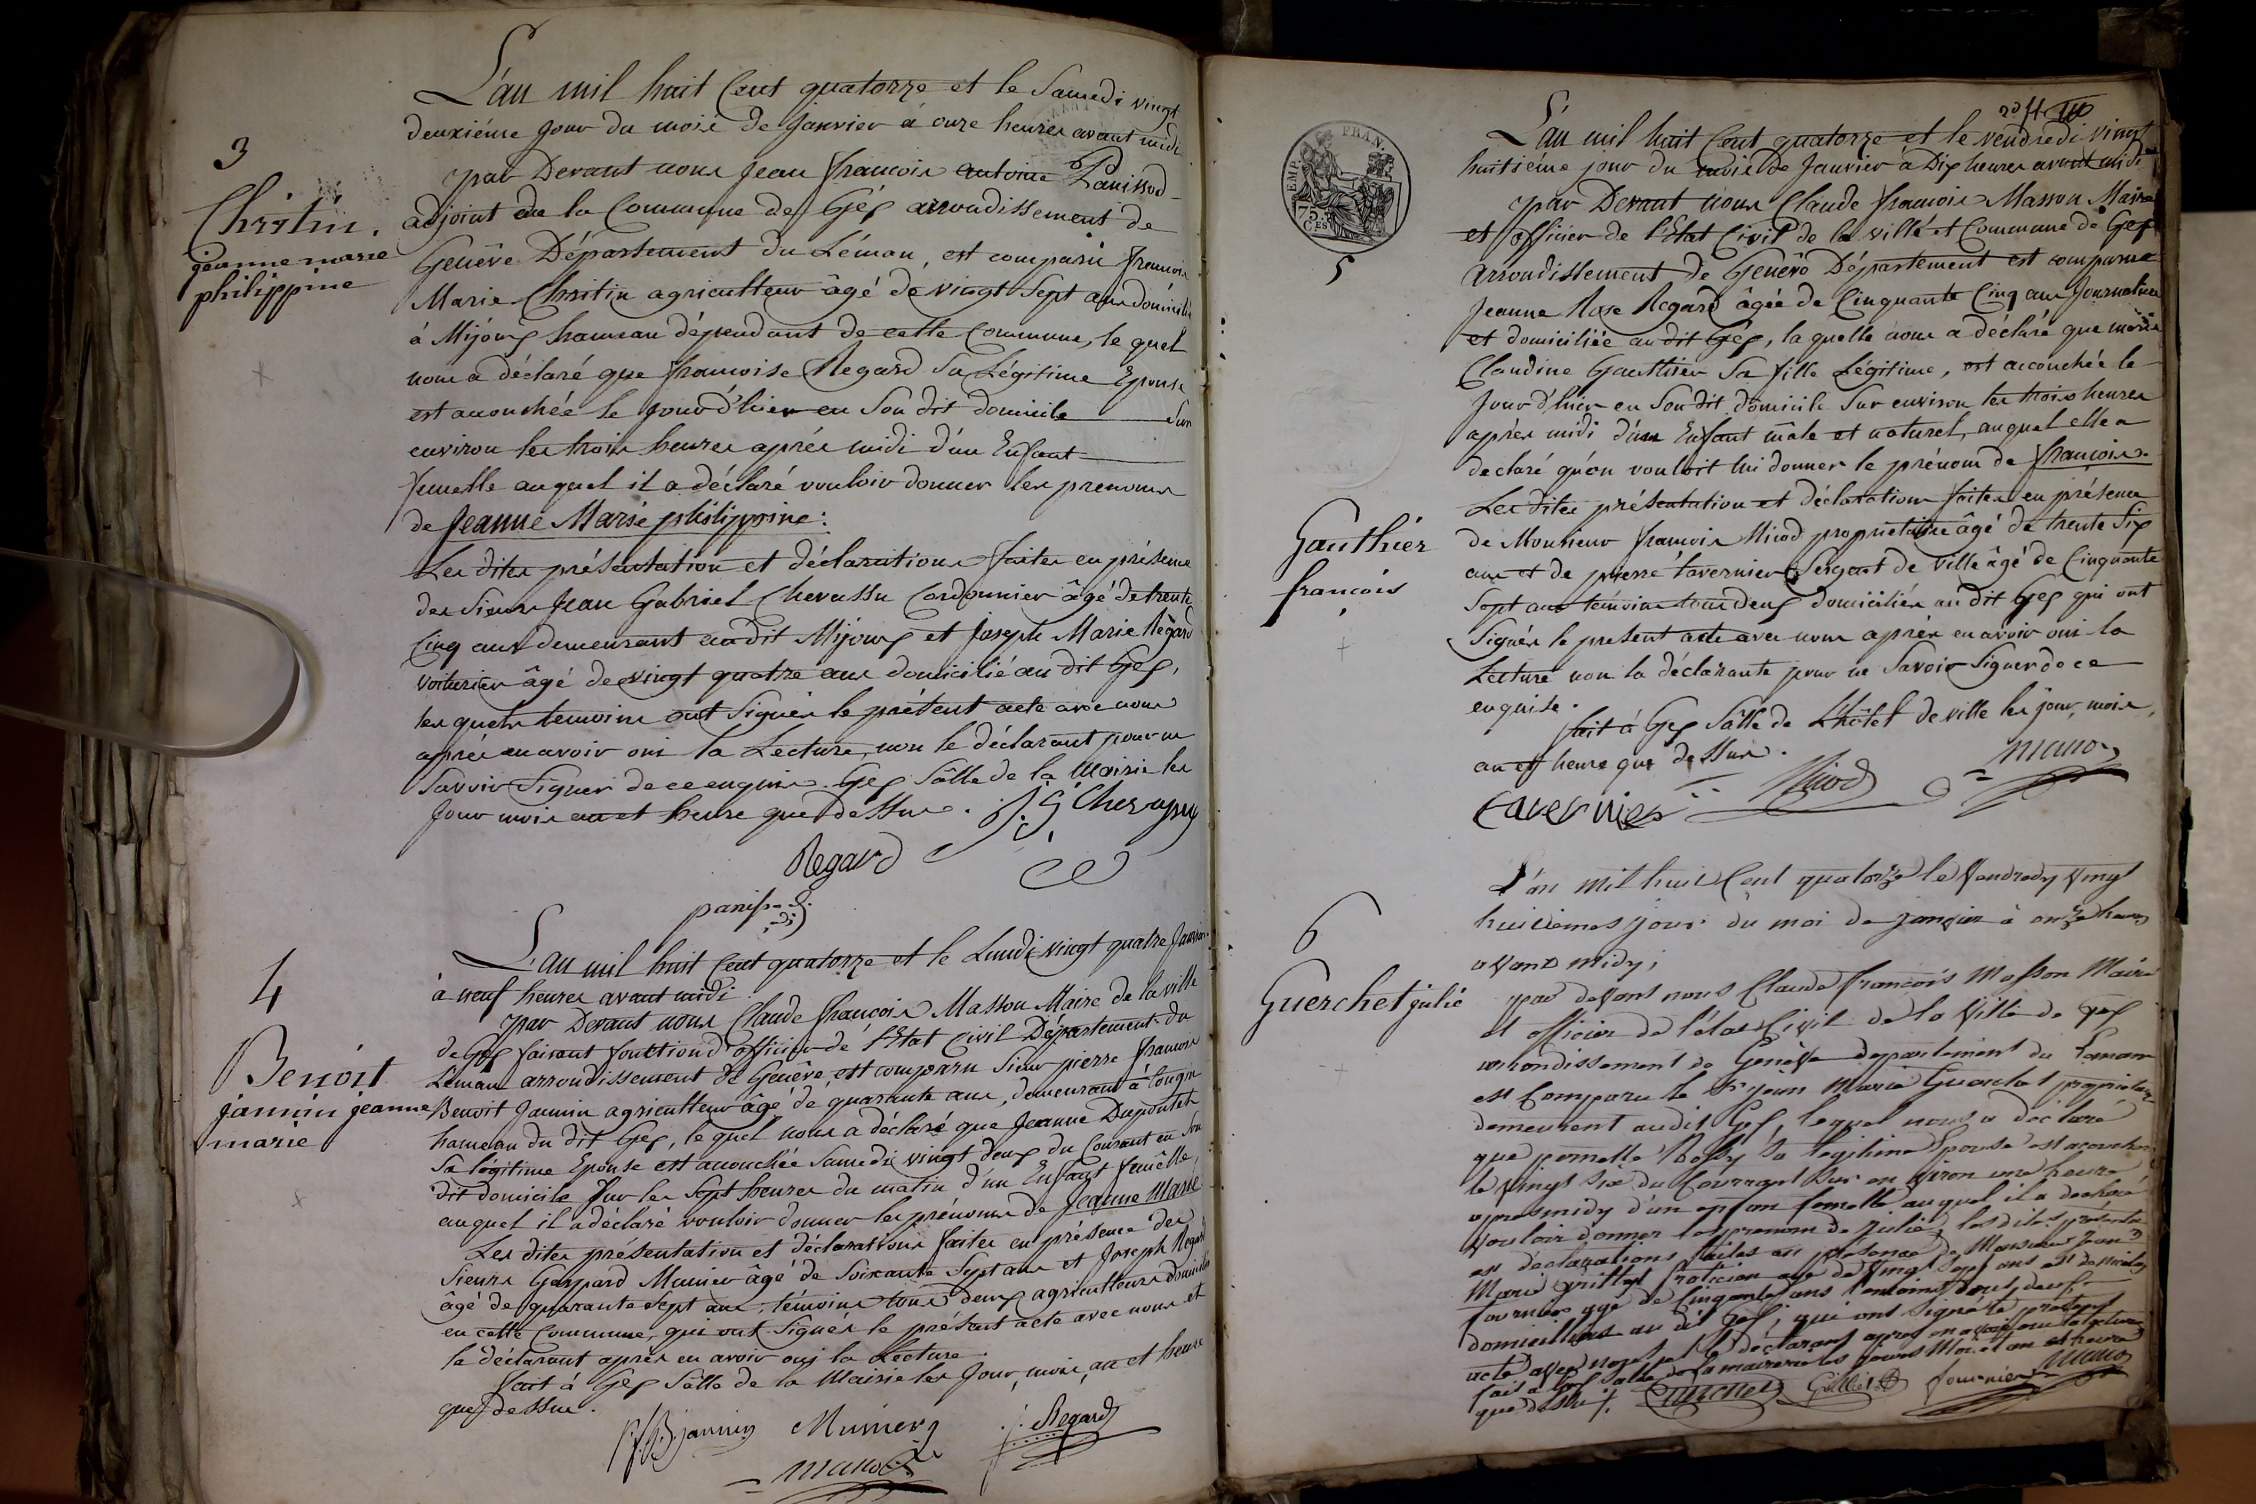 3
Christin
jeanne marie
philippine
L'an mil huit Cent quatorze et le Samedi vingt
deuxiéme jour du mois de Janvier à onze heures avant midi
par Devant nous Jean françois antoine Panissod
adjoint de la Commune de Gex arrondissement de
Genêve Département du Léman, est comparu françois
Marie Christin agriculteur âgé de vingt Sept ans domicilié
à Mijoux hameau dépendant de cette Commune, le quel
nous a déclaré que françoise Regard Sa Légitime Epouse
est accouchée le jour d'hier en Son dit domicile Sur
environ les trois heures aprés midi d'un Enfant
femelle auquel il a déclaré vouloir donner les prenoms
de Jeanne Marie philippine :
Les dites présentation et déclarations faites en présence
des Sieurs Jean Gabriel Chevassu Cordonnier âgé de trente
Cinq ans demeurant au dit Mijoux et Joseph Marie Regard
voiturier âgé de vingt quatre ans domicilié au dit Gex,
les quels temoins ont Signés le présent acte avec nous
aprés en avoir oui la Lecture, non le déclarant pour ne
Savoir Signer de ce enquis. Gex Sâlle de la Mairie les
Jour mois an et heure que deSsus. J. G Chevassu
Regard
panissod
adj
4
Benoit
jannin jeanne
marie
L'an mil huit Cent quatorze et le Lundi vingt quatre Janvier
à neuf heures avant midi
par Devant nous Claude françois Masson Maire de la ville
de Gex faisant fonction d'officier de l'Etat Civil Département du
Léman arrondissement de Genêve, est comparu Sieur pierre françois
Benoit Jannin agriculteur âgé de quarante ans, demeurant à
hameau du dit Gex, le quel nous a déclaré que Jeanne Dupontet
Sa légitime Epouse est accouchée Samedi vingt deux du Courant en Son
dit domicile Sur les Sept heures du matin d'un Enfant femêlle,
auquel il a déclaré vouloir donner les prénoms de Jeanne Marie
Les dites présentation et déclarations faites en présence des
Sieurs Gaspard Munier âgé de Soixante Sept ans et Joseph Regard
âgé de quarante Sept ans, témoins tous deux agriculteurs domiciliés
en cette Commune, qui ont Signés le présent acte avec nous et
le déclarant aprés en avoir oui la Lecture.
fait à Gex Sâlle de la Mairie les Jour, mois, an et heure
que deSsus.
P.f.B. jannin Munier J. Regard
masson
EMP. FRAN.
75
CES
5
Gauthier
francois
L'an mil huit Cent quatorze et le vendredi vingt
huitiéme jour du mois de Janvier à Dix heures avant midi
par Devant nous Claude françois Masson Maire
et officier de l'Etat Civil de la ville et Commune de Gex
arrondissement de Genêve Département est comparue
Jeanne Rose Regard âgée de Cinquante Cinq ans Journalière
et domiciliée au dit Gex, la quelle nous a déclaré que marie
Claudine Gauthier Sa fille Légitime, est accouchée le
Jour d'hier en Son dit domicile Sur environ les trois heures
aprés midi d'un Enfant mâle et naturel, auquel elle a
declaré qu'on vouloit lui donner le prénom de françois.
Les dites présentation et déclarations faites en présence
de Monsieur françois Nicod proprietaire âgé de trente Six
ans et de pierre tavernier Sergent de Ville âgé de Cinquante
Sept ans témoins tous deux domiciliés au dit Gex qui ont
Signés le present acte avec nous aprés en avoir oui la
Lecture non la déclarante pour ne Savoir Signer de ce
enquise.
fait à Gex Sâlle de L'hôtel de ville les jour, mois,
an et heure que deSsus.
masson
Nicod
tavernier
6
Guerchet julie
L'an mil huit Cent quatorze le Vendredy Vingt
huitiemes jour du moi de janvier à onze heures
avant midy;
par devant nous Claude francois Masson Maire
et officier de l'état Civil de la Ville de Gex
arrondissement de Genève departement du Leman
est Comparu le Sr jean Marie Guerchet propriétaire
demeurent audit Gex, lequel nous a déclaré
que pernette Roby Sa legitime Epouse est acouchée
le Vingt Six du Courrant Sur environ une heure
apres midy d'un enfan femelle auquel il a declaré
Vouloir donner le prenom de Julie, les dites présentation
et déclarations faites en presence de Monsieur Jean
Marie Grillet praticien age de Vingt Sept ans et
fournier age de Cinquante ans temoins tous deux
domicilliés au dit Gex, qui ont Signés le present
acte avec nous et le déclarant apres en avoir oui la lecture
fait a Gex Salle de la mairie les jours Moi et an et heure
que dessus. Guerchet Grillet fournier masson